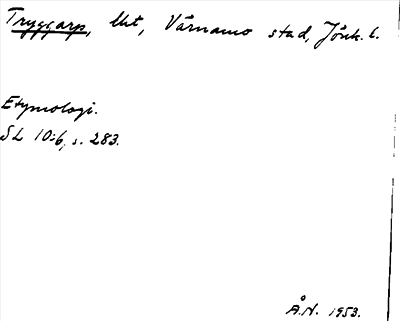 Tryggarp, lht, Värnamo stad, Jönk. l.
Etymologi.
SL 10:6, s. 283.
Å.N. 1953.